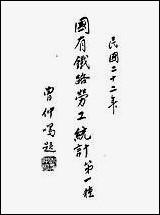 民國二十二年
國有鐵路勞工統計第一種
曾仲鳴題